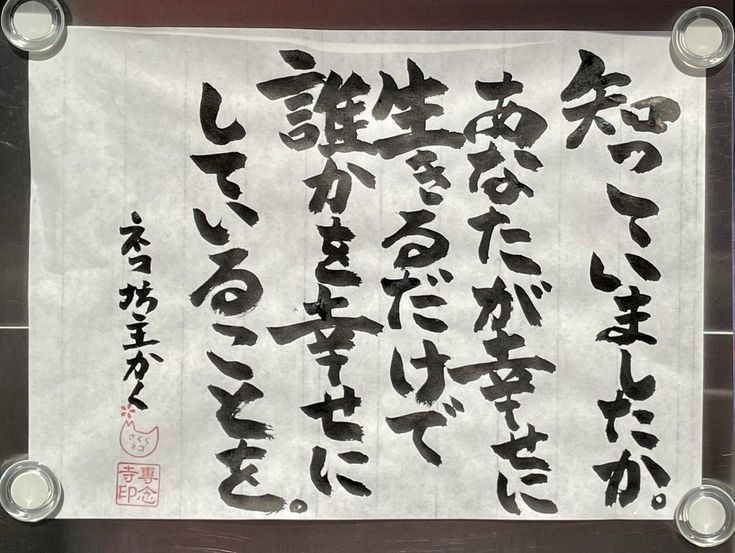 知っていましたか。
あなたが幸せに
生きるだけで
誰かを幸せに
していることを。
ネコ坊主かく
さくら
ネコ
専念
寺印